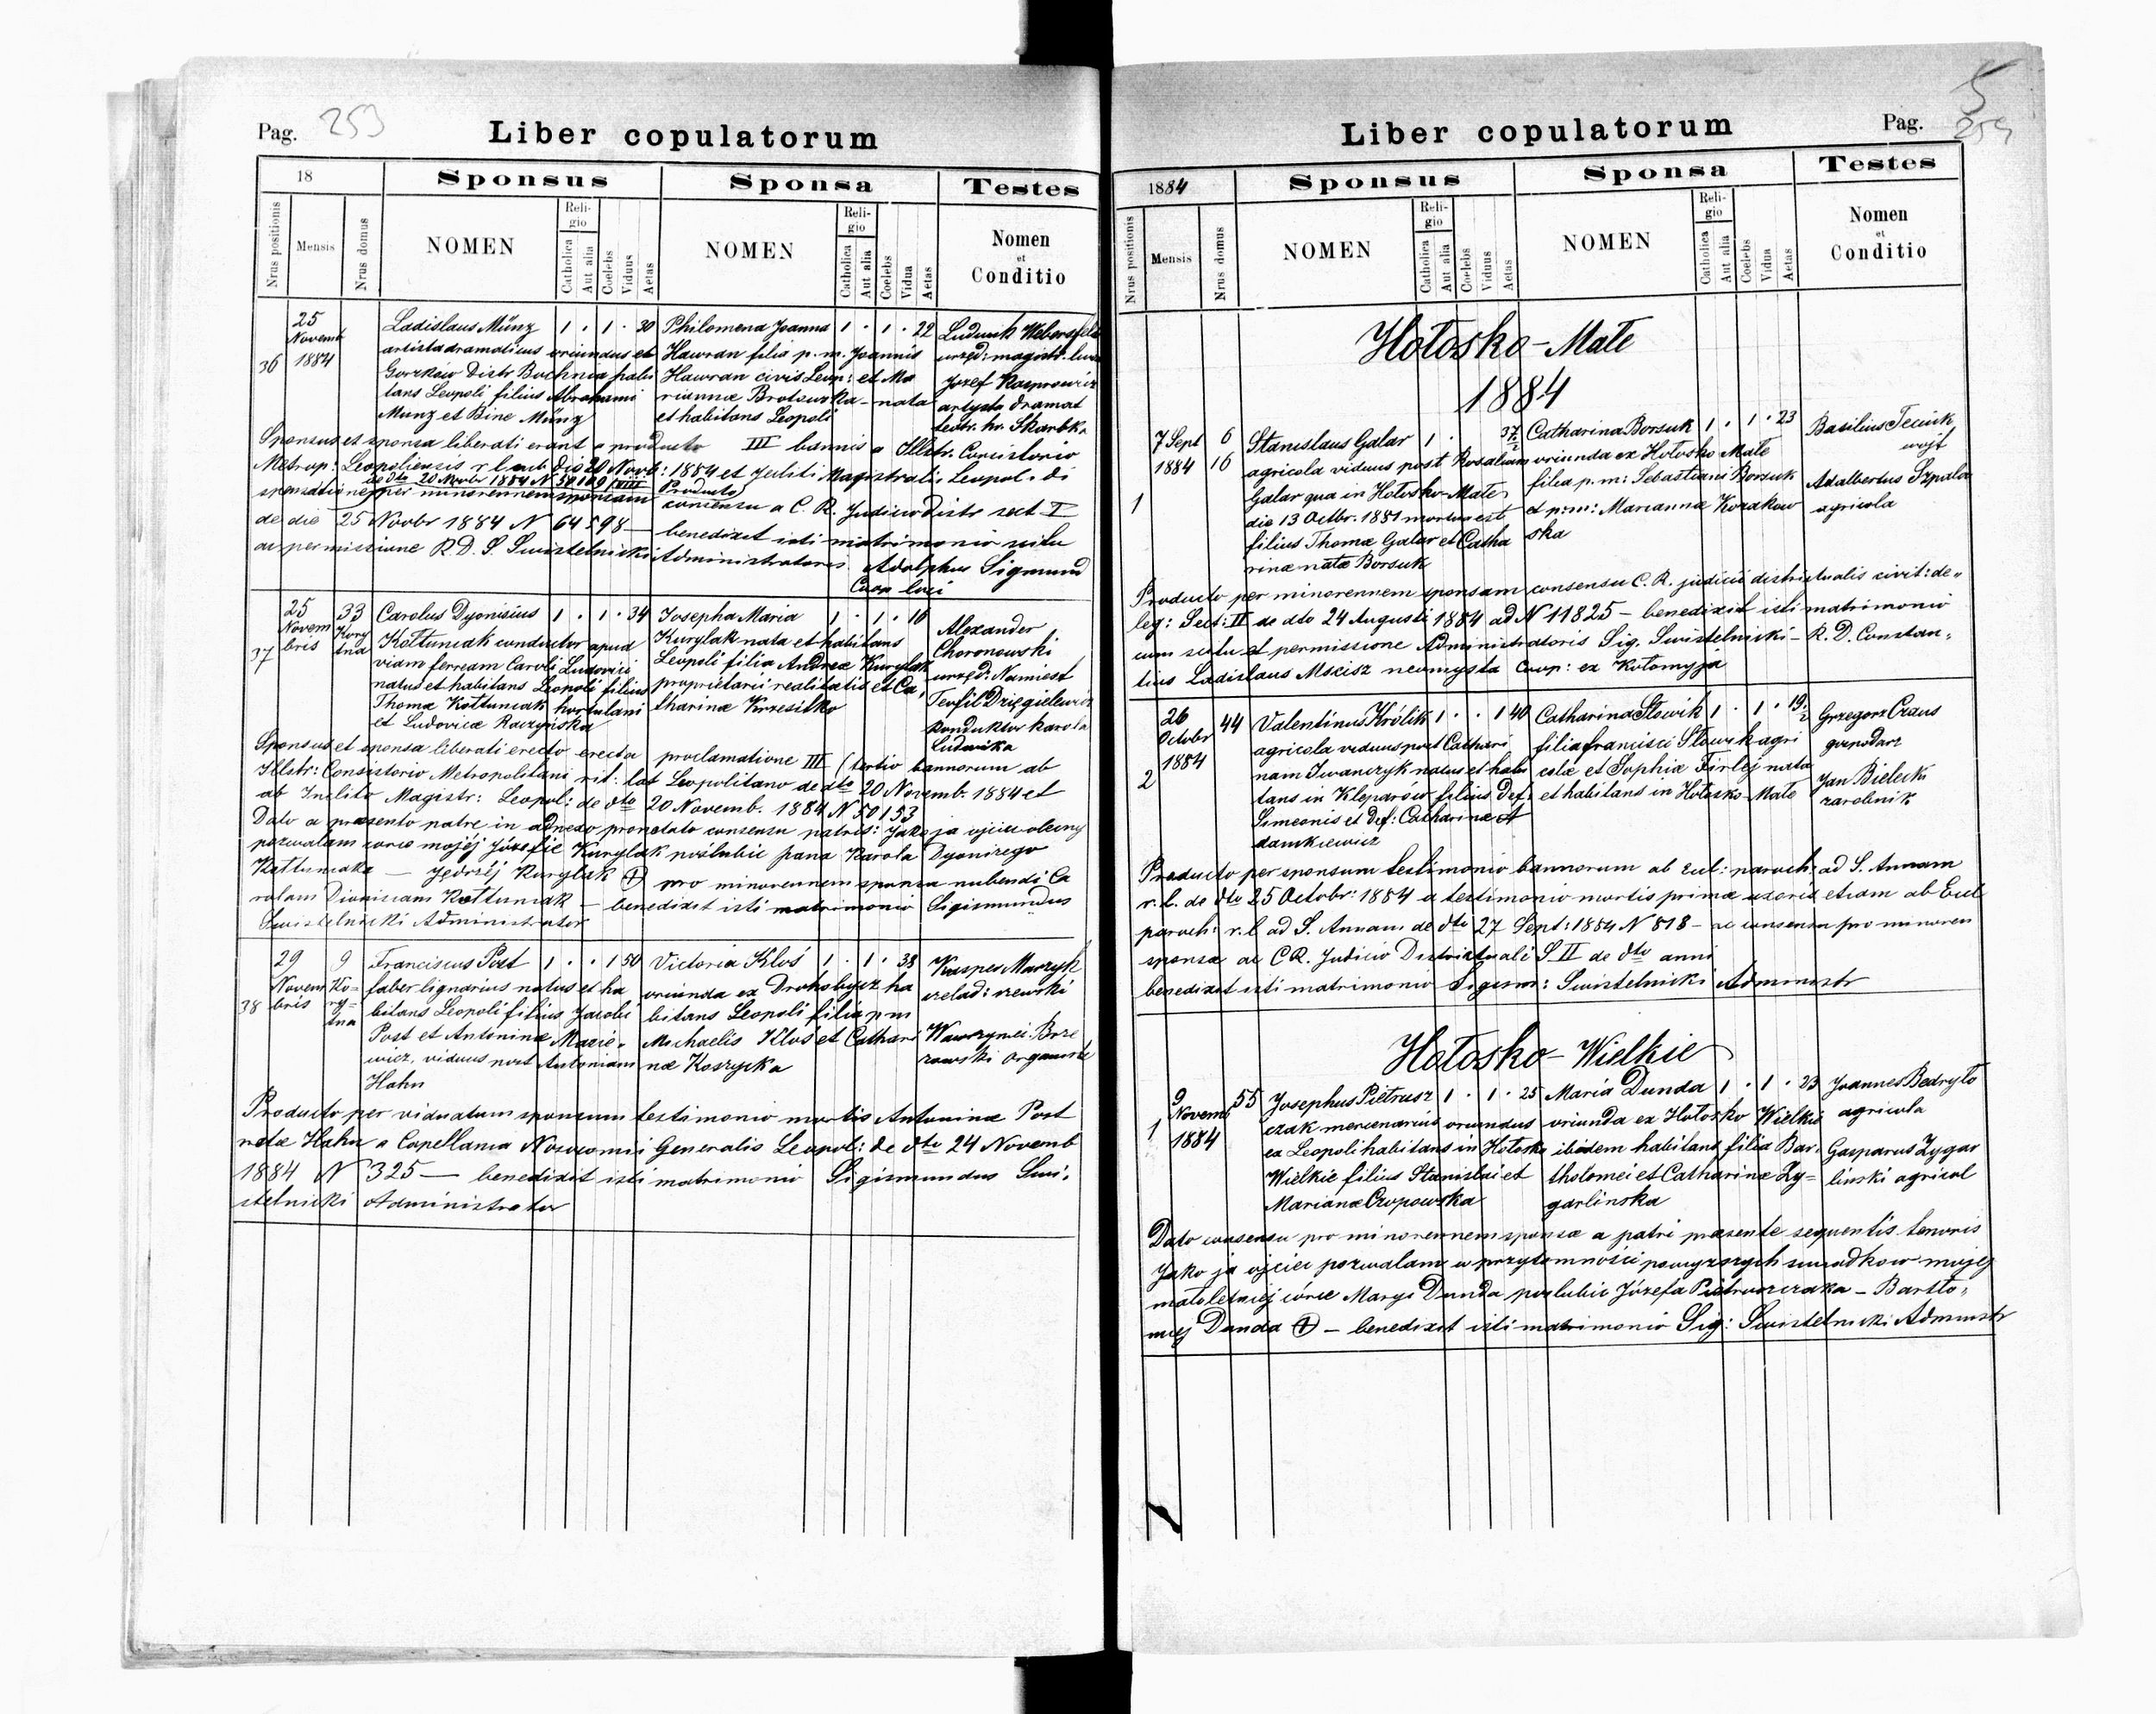 Pag. 253
Liber copulatorum
18
Sponsus
Sponsa
Testes
Nrus positionis
Mensis
Nrus domus
NOMEN
Religio
Catholica
Aut alia
Coelebs
Viduus
Aetas
NOMEN
Religio
Catholica
Aut alia
Coelebs
Vidua
Aetas
Nomen
et
Conditio
36
25
Novemb
1884
Ladislaus Münz 1 · 1 · 30
artista dramaticus oriundus ex
Gorzków Distr Bochnia habi
tans Leopoli filius Abrahami
Münz et Bine Münz
Philomena Joanna 1 · 1 · 22
Hawran filia p. m. Joannis
Hawran civis Leop: et Ma
riannæ Brotowska nata
et habitans Leopoli
Ludwik Webersfeld
urzęd: magistr.
Józef Kasprowicz
artysta dramat
teatr. hr. Skarbka
Sponsus et sponsa liberati erant a producto III bannis a Illstr. Consistorio
Metrop: Leopoliensis r l sub dio 20 Novb: 1884 et Incliti Magistrali Leopol. di
de dto 20 Novbr 1884 N VIII
spensatione per minorennem sponsam Producto consensu a C. R. Judicio Distr sect I
de die 25 Novbr 1884 N 64598 — benedixit isti matrimonio
ac permissione R. D. S. Swistelnicki Administratoris. Adolphus Sigmund
Coop loci
37
25
Novem
bris
33
Kory
tna
Carolus Dyonisius 1 · 1 · 34
Kottuniak conductor apud
viam ferream Caroli Ludovici
natus et habitans Leopoli filius
Thomæ Kottuniak hortulani
et Ludovicæ Raczyńska
Josepha Maria 1 · 1 · 16
Kurylak nata et habitans
Leopoli filia Andreæ Kurylak
proprietarii realitatis et Ca,
tharinæ Krzesitko
Alexander
Choronowski
urzęd: Namiest
Teofil Dzięgielewicz
konduktor karola
Ludwika
Sponsus et sponsa liberati erecto erecta proclamatione III (tertio bannorum ab
Illstr: Consistorio Metropolitani rit: lat Leopolitano de dto 20 Novemb. 1884 et
ab Inclito Magistr: Leopol: de dto 20 Novemb. 1884 N 50153
Dato a præsento patre in adnexo pronotato consensu patris: Jako ja ojciec obecny
pozwalam corce mojéj Józefie Kurylak poślubic pana Karola Dyonizego
Kottuniaka — Jędrzéj Kurylak (+) pro minorennem sponsa nubendi Ca
rolam Dionisiam Kottuniak — benedixit isti matrimonio Sigismundus
Swistelnicki Administrator
38
29
Novem
bris
9
Ko-
ry-
tna
Franciscus Post 1 · · 1 50
faber lignarius natus et ha
bitans Leopoli filius Jacobi
Post et Antoninæ Macie-
wicz, viduus post Antoniam
Hahn
Victoria Kłoś 1 · 1 · 38
oriunda ex Drohobycz ha
bitans Leopoli filia p m
Michaelis Kłoś et Cathari
næ Koszycka
Kasper Marzyk
czelad: szewski
Wawrzyniec Brze
zowski organista
Producto per viduatum sponsum testimonio mortis Antoninæ Post
natæ Hahn a Capellania Nosocomii Generalis Leopol: de dto 24 Novemb
1884 N 325 — benedixit isti matrimonio Sigismundus Swi,
stelnicki Administrator
Liber copulatorum
Pag. 254
5
1884
Sponsus
Sponsa
Testes
Nrus positionis
Mensis
Nrus domus
NOMEN
Religio
Catholica
Aut alia
Coelebs
Viduus
Aetas
NOMEN
Religio
Catholica
Aut alia
Coelebs
Vidua
Aetas
Nomen
et
Conditio
Hołosko-Małe
1884
1
7 Sept
1884
6
16
Stanislaus Galar 1 · 37
agricola viduus post Rosaliam
Galar qua in Hołosko-Małe
die 13 Octbr. 1881 mortua est
filius Thomæ Galar et Catha
rinæ natæ Borsuk
Catharina Borsuk 1 · 1 · 23
oriunda ex Hołosko Małe
filia p. m: Sebastiani Borsuk
et p: m: Marianna Kozakow
ska
Basilius Teciuk
wojt
Adalbertus Szpala
agricola
Producto per minorennem sponsam consensu C. R. judicii districtualis civit: de-
leg: Sect: II de dto 24 Augusti 1884 ad N 11825 — benedixit isti matrimonio
cum scitu et permissione Administratoris Sig. Swistelnicki — R. D. Constan-
tius Ladislaus Mścisz neomysta Coop: ex Kołomyja
2
26
Octobr
1884
44
Valentinus Królik 1 · · 1 40
agricola viduus post Cathari
nam Iwanczyk natus et habi
tans in Kleparów filius Def:
Simeonis et Def: Catharinæ A
damkiewicz
Catharina Słowik 1 · 1 · 19
filia Francisci Słowik agri
colæ et Sophiæ Firlej nata
et habitans in Hołosko-Małe
Grzegorz Craus
gospodarz
Jan Bielecki
zarobnik
Producto per sponsum testimonio bannorum ab Eccl: paroch: ad S. Annam
r. l. de dto 25 Octobr: 1884 a testimonio mortis primæ uxoris etiam ab Eccl
paroch: r. l ad S. Annam de dto 27 Sept: 1884 N 818 — ac consensu pro minoren
sponsæ ac C R. Judicio Districtuali S II de dto anni
benedixit isti matrimonio Sigism: Swistelnicki Administr
Hołosko-Wielkie
1
9
Novem
1884
55
Josephus Pietrusz 1 · 1 · 25
czak mercenarius oriundus
ex Leopoli habitans in Hołosko
Wielkie filius Stanislai et
Marianæ Czopowska
Maria Dunda 1 · 1 · 23
oriunda ex Hołosko Wielkie
ibidem habitans filia Bar-
tholomei et Catharinæ Zy-
garlinska
Joannes Bedryło
agricola
Gasparus Zygar
linski agricol
Dato consensu pro minorennem sponsæ a patri præsente sequentis tenoris
Jako ja ojciec pozwalam w przytomności powyzszych swiadkow mojej
małoletniej córce Maryi Dunda poslubic Józefa Pietruszczaka — Bartło-
miej Dunda (+) — benedixit isti matrimonio Sig: Swistelnicki Adminstr